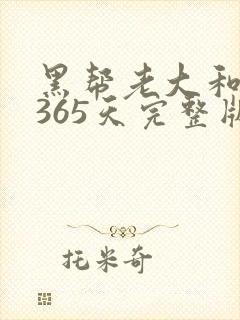 黑帮老大和
365天完整版
托米奇